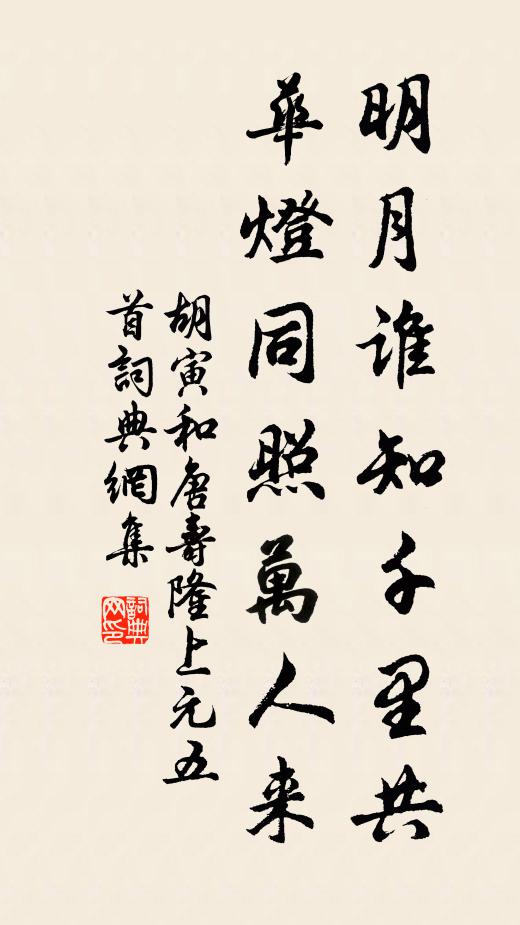 明月谁知千里共
華燈同照萬人来
胡寅和唐壽隆上元五
首詞典網集
詞典
网印